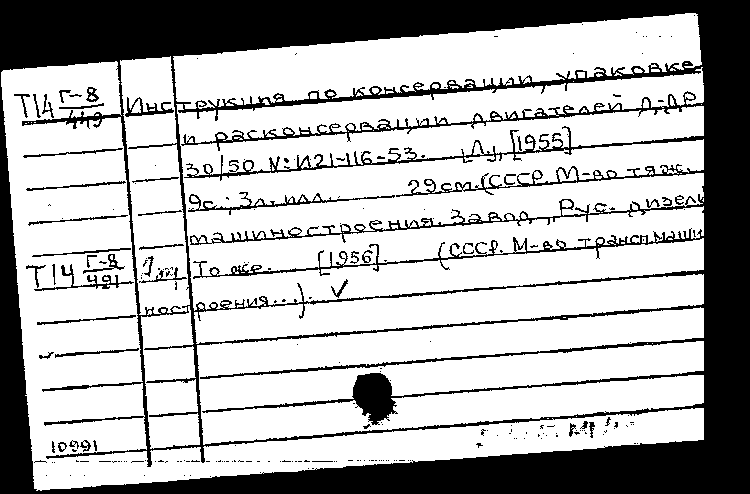 Т14 Г-8/449 Инструкция по консервации, упаковке
и расконсервации двигателей Д-ДР
30/50. №: И21-116-53. Л., [1955].
9с.; 3л. илл. 29см. (СССР. М-во тяж.
машиностроения. Завод „Рус. дизель
Т14 Г-8/491 То же. [1956]. (СССР. М-во трансп. маши
ностроения...). ✓
10991